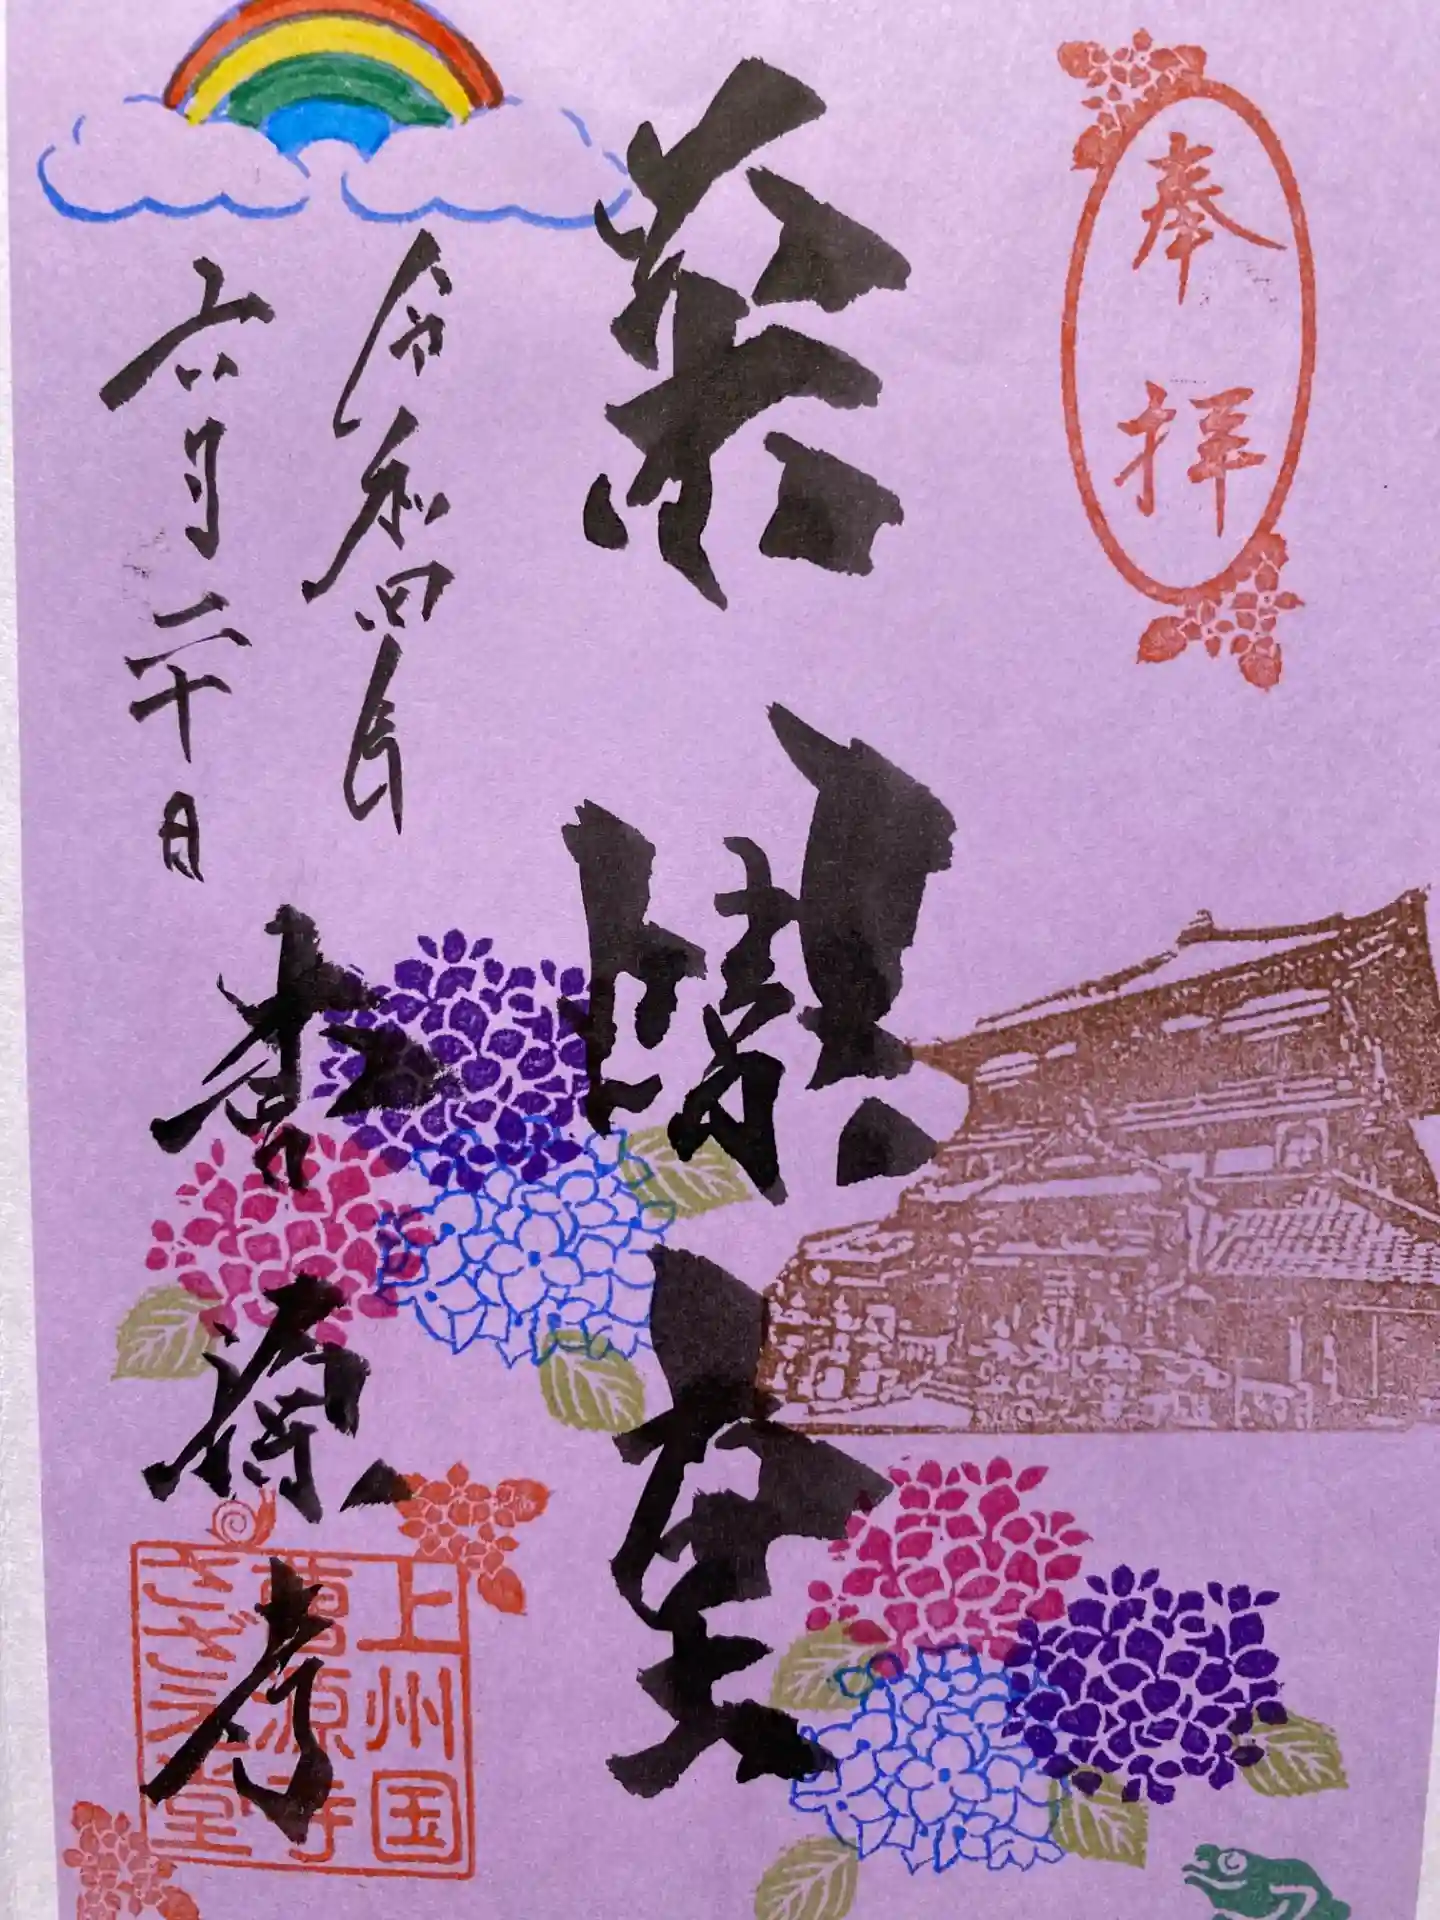 奉拝
栄螺堂
令和四年
六月二十日
曹源寺
上州国
曹源寺
さざえ堂